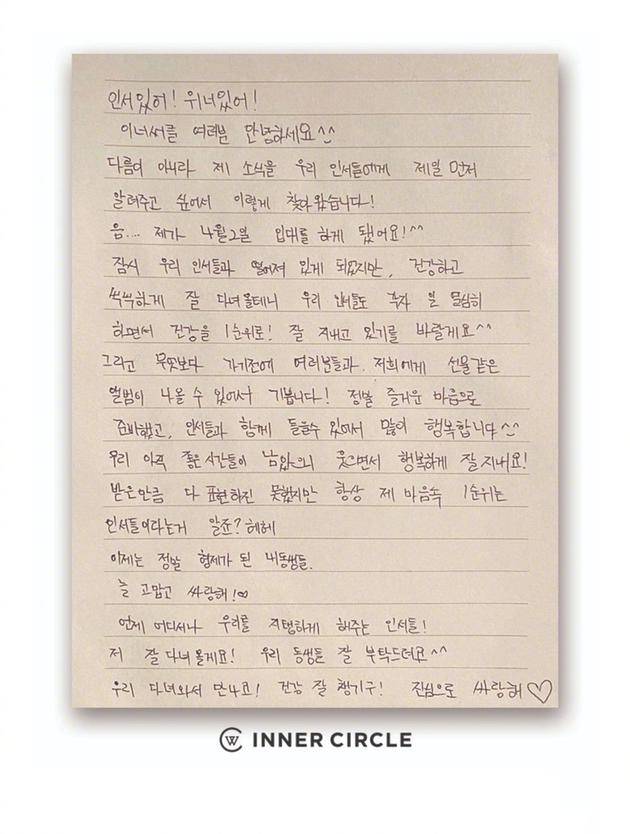 인서있어! 위너있어!
이너써클 여러분 안녕하세요^^
다름이 아니라 제 소식을 우리 인서들에게 제일 먼저
알려주고 싶어서 이렇게 찾아왔습니다!
음... 제가 4월2일 입대를 하게 됐어요!^^
잠시 우리 인서들과 떨어져 있게 되었지만, 건강하고
씩씩하게 잘 다녀올테니 우리 인서들도 각자 일 열심히
하면서 건강을 1순위로! 잘 지내고 있기를 바랄게요^^
그리고 무엇보다 가기전에 여러분들과 저희에게 선물같은
앨범이 나올 수 있어서 기쁩니다! 정말 즐거운 마음으로
준비했고, 인서들과 함께 들을수 있어서 많이 행복합니다^^
우리 아직 좋은시간들이 남았으니 웃으면서 행복하게 잘지내요!
받은만큼 다 표현하진 못했지만 항상 제 마음속 1순위는
인서들이라는거 알죠? 헤헤
이제는 정말 형제가 된 내동생들.
늘 고맙고 싸랑해!♡
언제 어디서나 우리를 지탱하게 해주는 인서들!
저 잘다녀올게요! 우리 동생들 잘 부탁드려요^^
우리 다녀와서 만나고! 건강 잘 챙기구! 진심으로 싸랑해♡
INNER CIRCLE